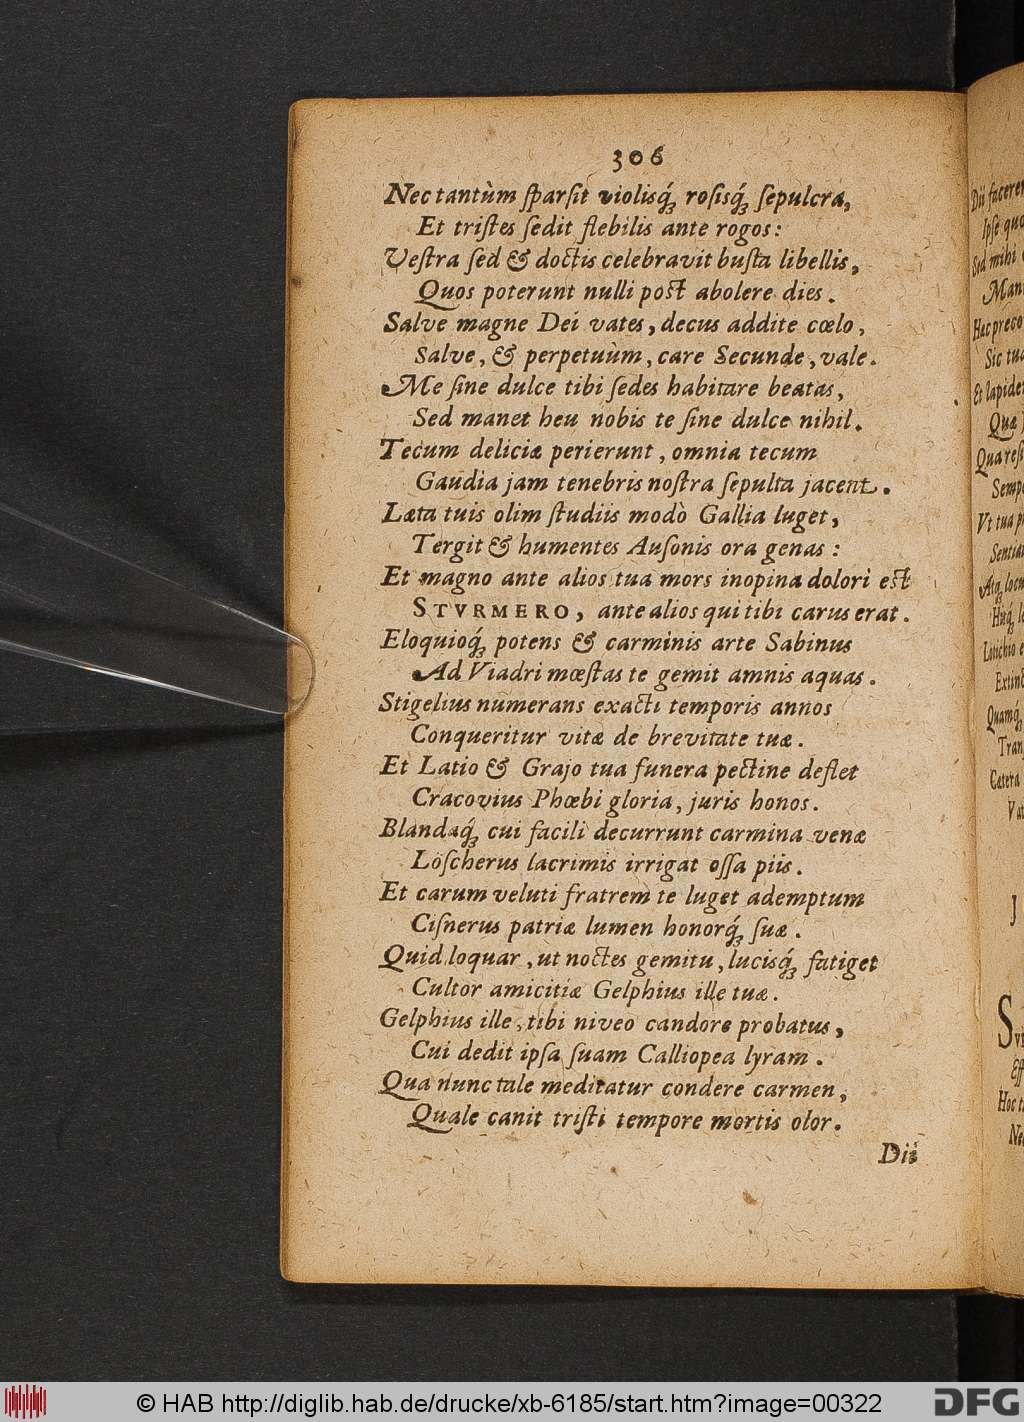 306
Nec tantùm ſparſit violisq́; rosisq́; ſepulcra,
Et triſtes ſedit flebilis ante rogos:
Veſtra ſed & doctis celebravit buſta libellis,
Quos poterunt nulli poſt abolere dies.
Salve magne Dei vates, decus addite cœlo,
Salve, & perpetuùm, care Secunde, vale.
Me ſine dulce tibi ſedes habitare beatas,
Sed manet heu nobis te ſine dulce nihil.
Tecum deliciæ perierunt, omnia tecum
Gaudia jam tenebris noſtra ſepulta jacent.
Læta tuis olim ſtudiis modò Gallia luget,
Tergit & humentes Auſonis ora genas:
Et magno ante alios tua mors inopina dolori eſt
STVRMERO, ante alios qui tibi carus erat.
Eloquioq́; potens & carminis arte Sabinus
Ad Viadri mœſtas te gemit amnis aquas.
Stigelius numerans exacti temporis annos
Conqueritur vitæ de brevitate tuæ.
Et Latio & Grajo tua funera pectine deflet
Cracovius Phœbi gloria, juris honos.
Blandaq́; cui facili decurrunt carmina venæ
Löſcherus lacrimis irrigat oſſa piis.
Et carum veluti fratrem te luget ademptum
Ciſnerus patriæ lumen honorq́; ſuæ.
Quid loquar, ut noctes gemitu, lucisq́; fatiget
Cultor amicitiæ Gelphius ille tuæ.
Gelphius ille, tibi niveo candore probatus,
Cui dedit ipſa ſuam Calliopea lyram.
Qua nunc tale meditatur condere carmen,
Quale canit triſti tempore mortis olor.
Dii
© HAB http://diglib.hab.de/drucke/xb-6185/start.htm?image=00322
DFG